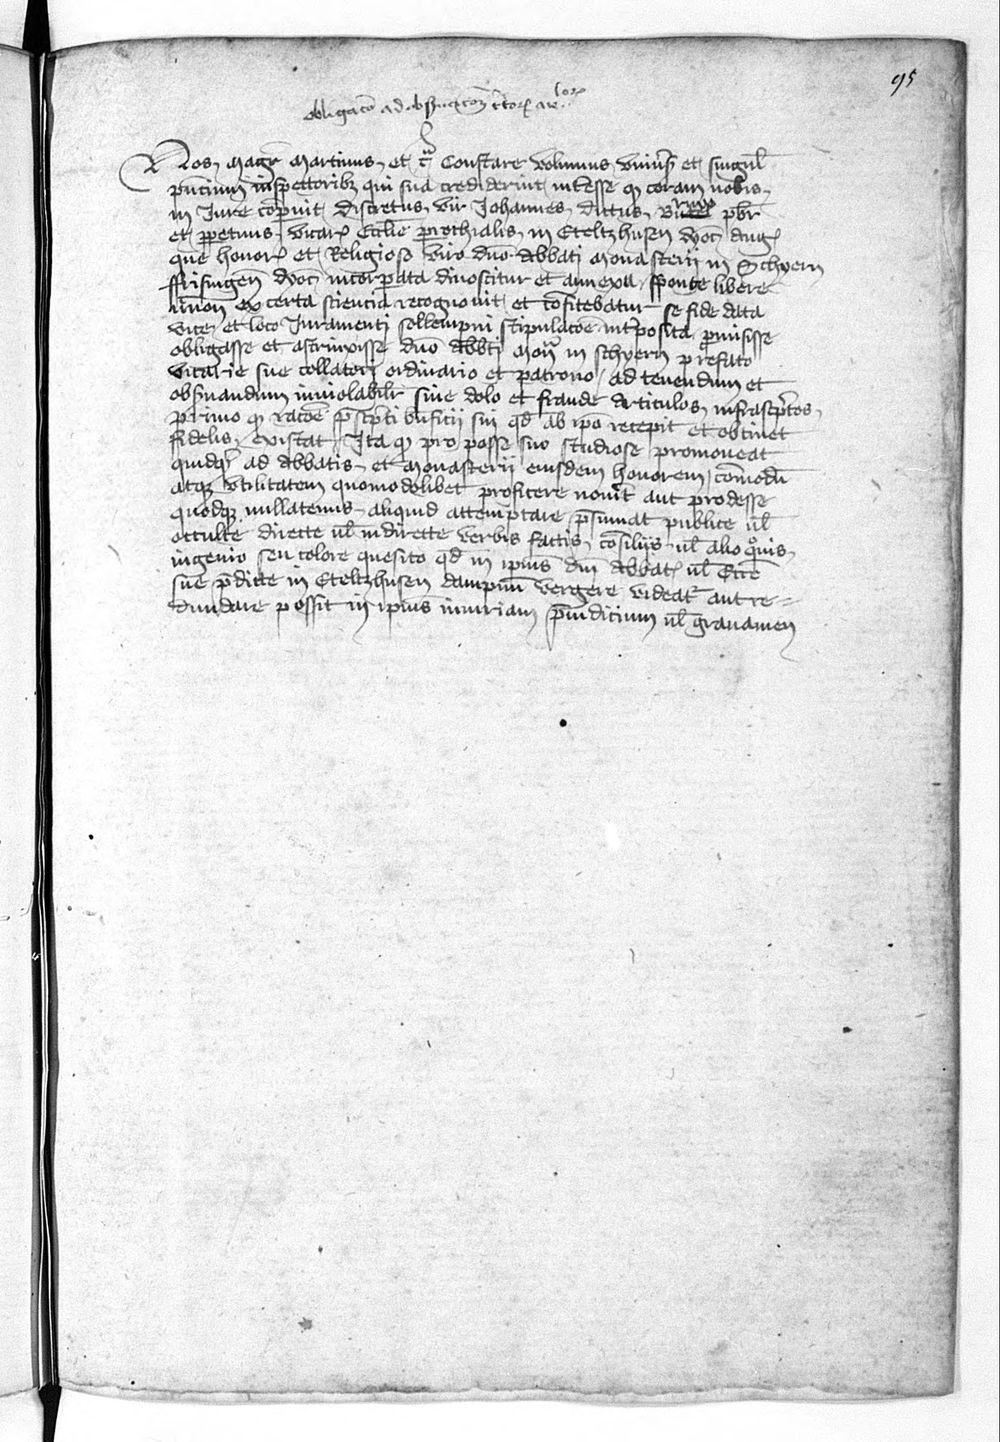 95
obligacō ad obſuacōȝ
Nos magr Martinus et cͣ Conſtare volumus vniuſ et ſingul
pn̄cium inſpectoribȝ qui ſua crediderint intesse ꝙ coram nobis
in Jure cōpuit diſcretus vir Johannes dictus pbr
et ꝑpetuus vicar Eccl̄ie ꝑrochialis in Eteltzhuſen dyoc̄ aug
que honor et Religioſo viro dn̄o Abbati Monaſterii in Schyern
ffriſingen̄ dyoc̄ incorꝑata dinoſcitur et annexa ſponte libere
ex certa ſciencia recognouit et cōfitebatur ſe fide data
vice et loco Juramenti ſollempni ſtipulacōe intꝑoſita ꝓmiſiſſe
obligaſſe et aſtrinxiſſe dn̄o Abbti Mon in ſchyern prefato
vicarie ſue collatori ordinario et patrono ad tenendum et
obſuandum inuiolabilr ſine dolo et fraude articulos infraſcp̄tos
primo ꝙ racōe p̄ſcp̄ti bn̄ficii ſui qd̄ ab ip̄o recepit et obtinet
fidelis exiſtat Ita ꝙ pro poſſe ſuo ſtudioſe promoueat
quidqͥd ad Abbatis et Monaſterii eiuſdem honorem cōmodū
atqȝ vtilitatem quomodolibet proficere nouit aut prodeſſe
quodqȝ nullatenus aliquid attemptare p̄ſumat publice ul̄
occulte directe ul̄ indirecte verbis factis cōſilijs ul̄ alio qͦuis
ingenio ſeu colore queſito qd̄ in ipius dn̄i Abbat ul̄ Ecc̄e
ſue p̄dicte in Eteltzhuſen dampnū vergere videat aut re=
dundare poſſit in ipius iniuriam p̄iudicium ul̄ grauamen